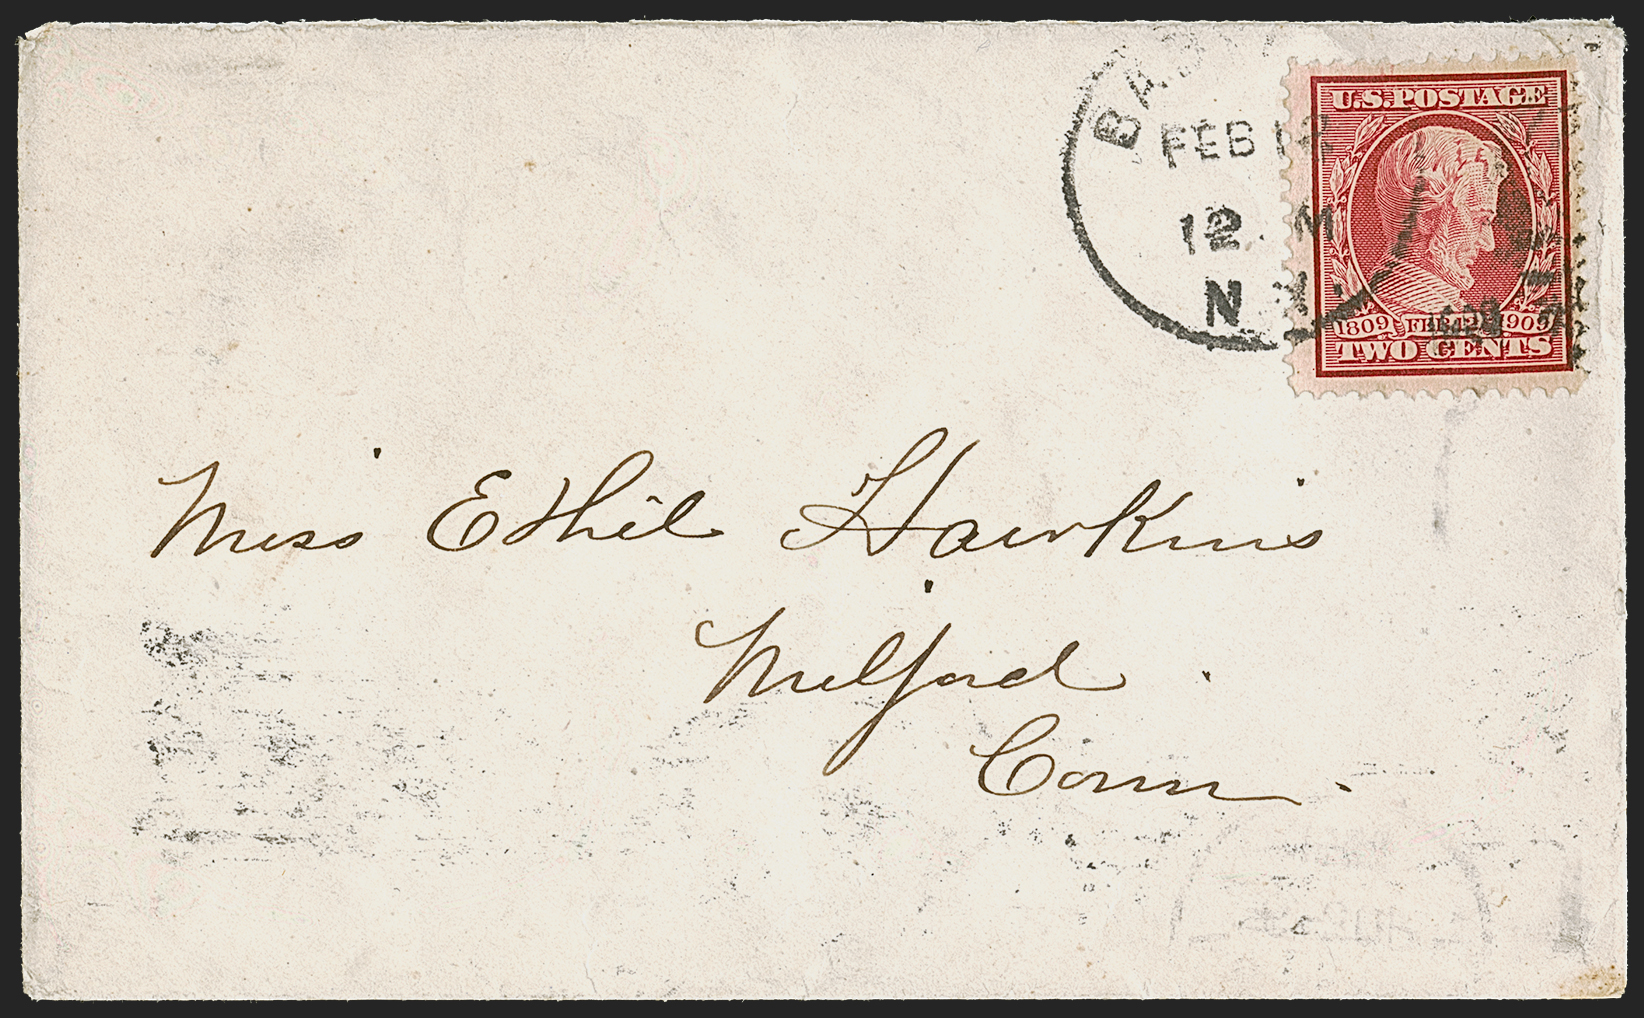 FEB 12
12 M
N.Y.
U.S. POSTAGE
1809 FEB 12 1909
TWO CENTS
Miss Ethel Hawkins
Milford
Conn.